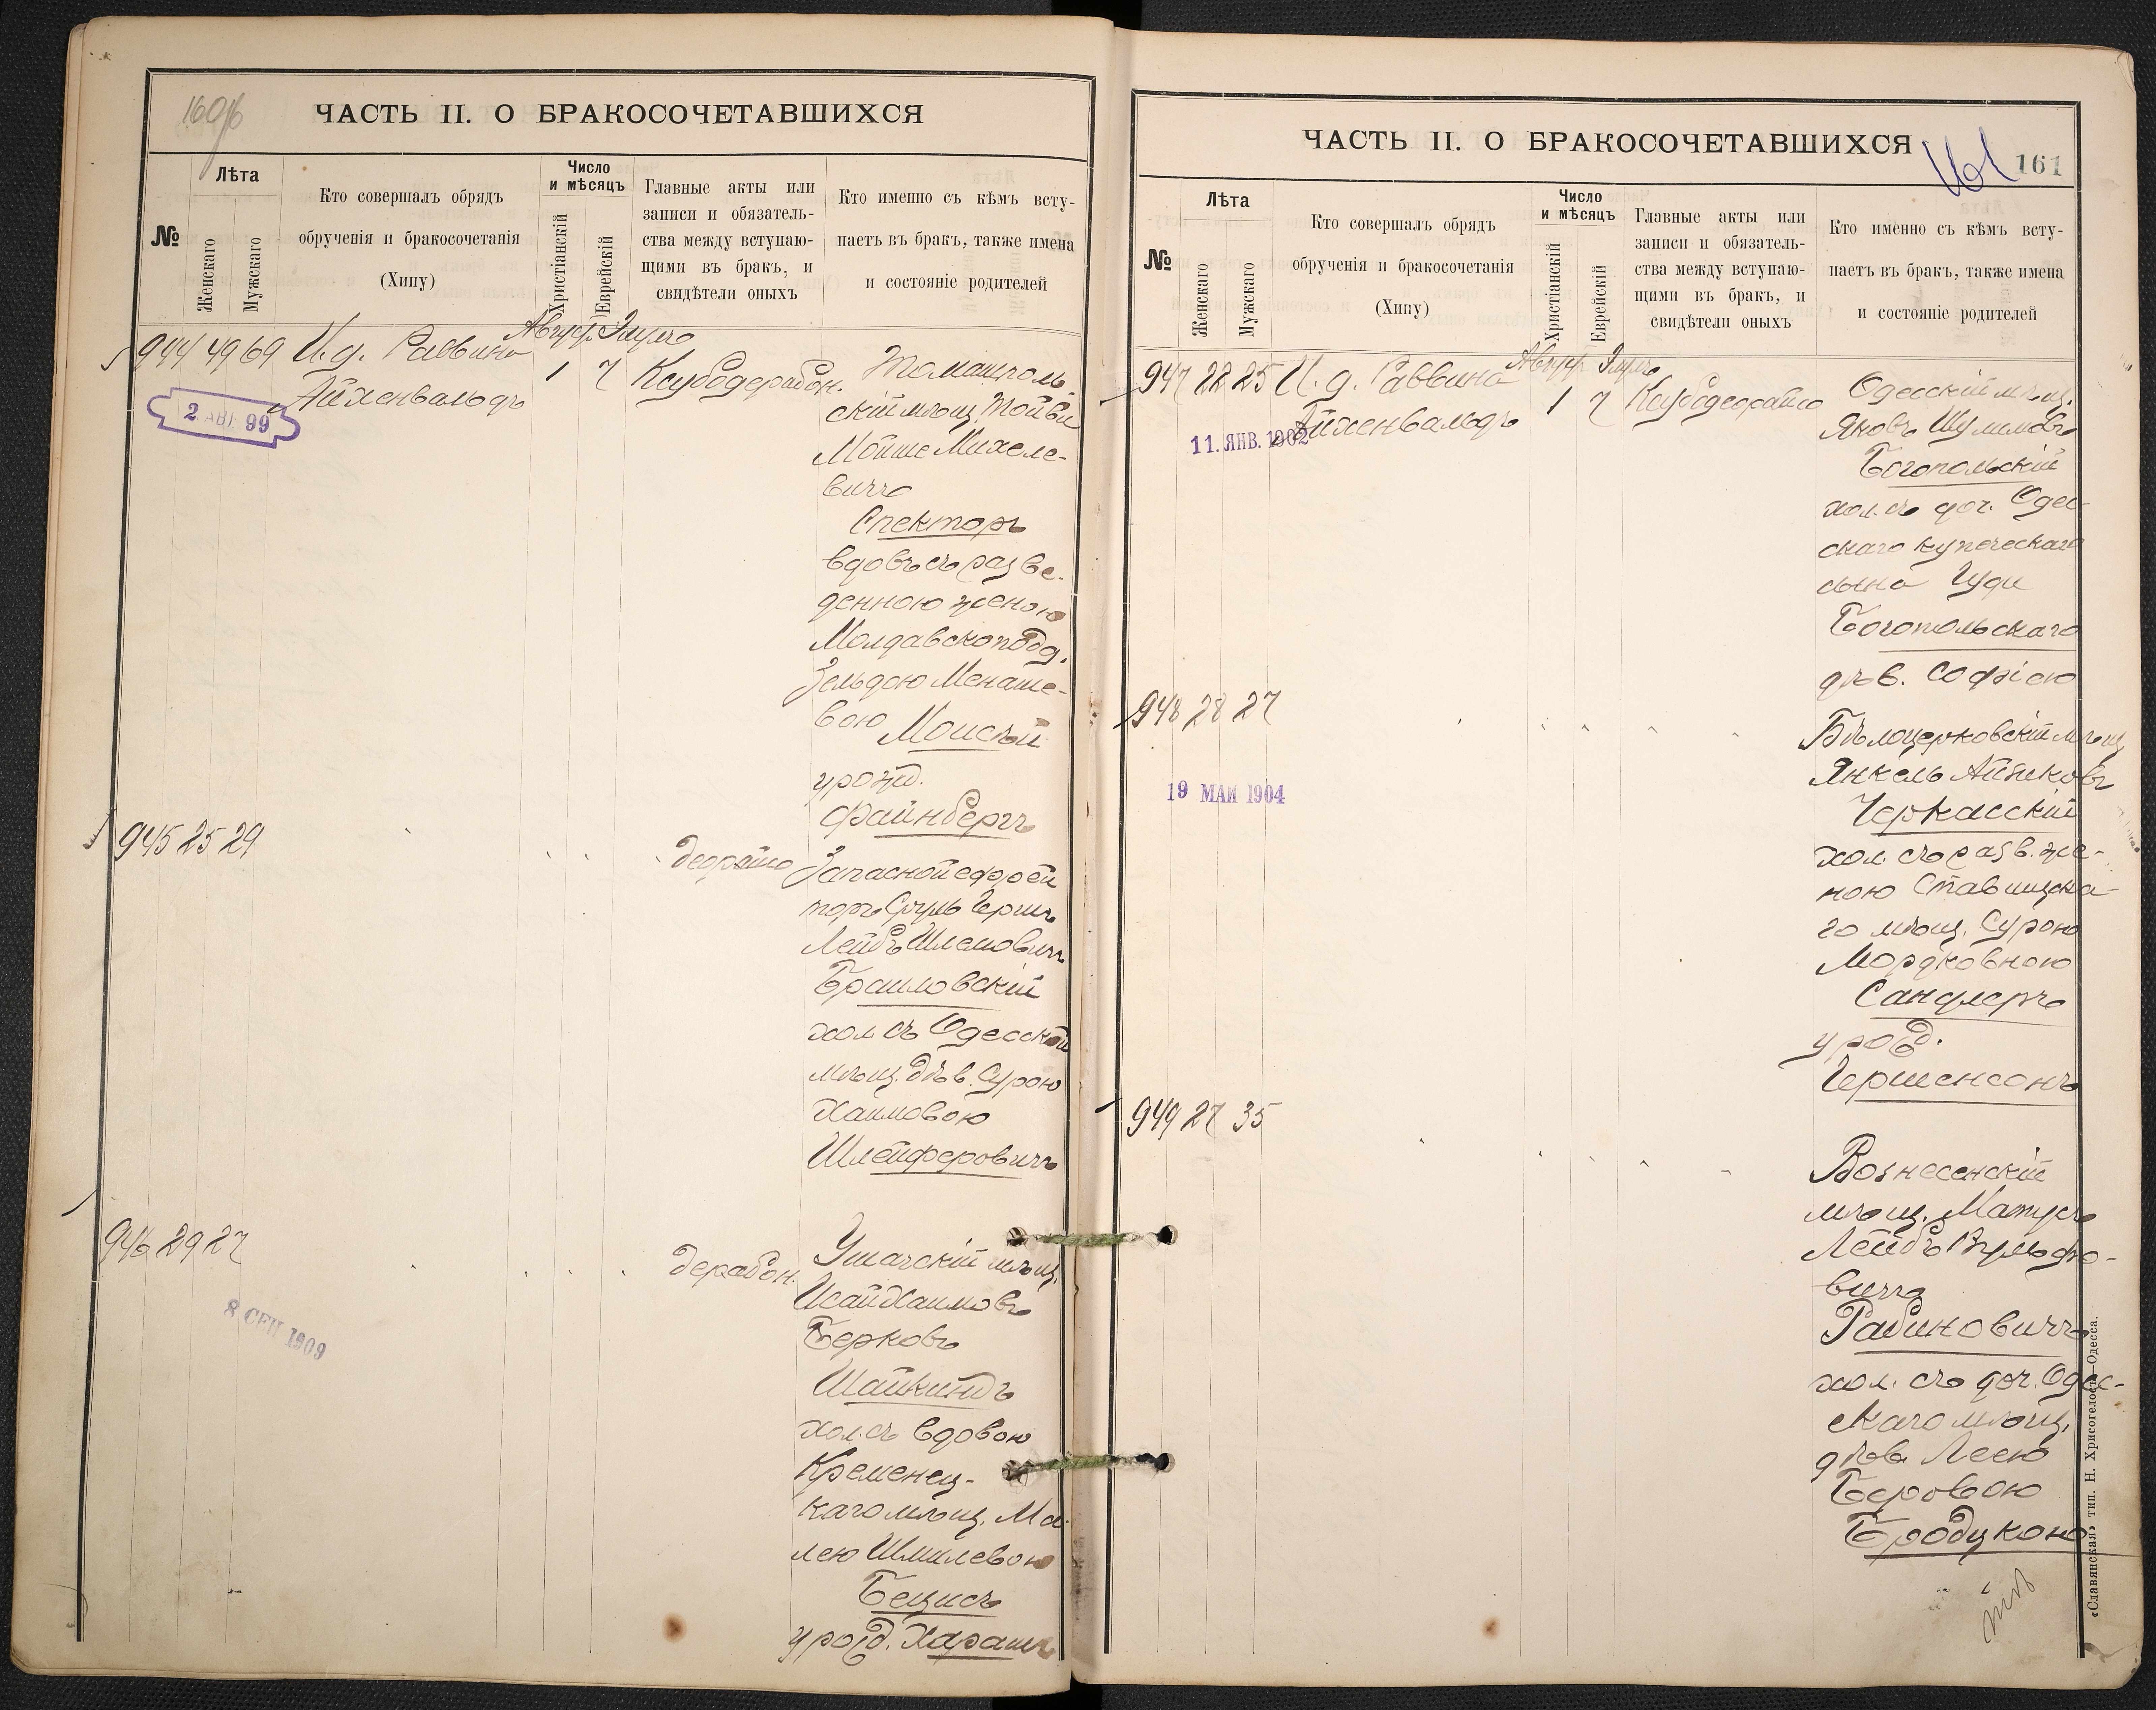 160 об
ЧАСТЬ II. О БРАКОСОЧЕТАВШИХСЯ
№
Лѣта
Женскаго
Мужскаго
Кто совершалъ обрядъ
обрученія и бракосочетанія
(Хипу)
Число
и мѣсяцъ
Христіанскій
Еврейскій
Главные акты или
записи и обязатель-
ства между вступаю-
щими въ бракъ, и
свидѣтели оныхъ
Кто именно съ кѣмъ всту-
паетъ въ бракъ, также имена
и состояніе родителей
944 49 69 И. д. Раввина
Айхенвальдъ
Август Элулъ
1 7
Ксубодерабон.
2 АВГ. 99
Томашполь
скій мѣщ. Тойви
Мойше Михеле-
вичъ
Спекторъ
вдовъ съ разве-
денною женою
Молдавскоподд.
Зельдою Менаше-
вою Моисъй
урожд.
Файнбергъ
945 25 29
Деорайсо
Запасной ефрей
торъ Сруль Гершъ
Лейбъ Шлемовичъ
Браиловскій
хол. съ Одесской
мѣщ. дѣв. Сурою
Хаимовою
Шлейферовичъ
946 29 27
Дерабон.
8 СЕН 1909
Ушачскій мѣщ.
Исай Хаимовъ
Берковъ
Шайкиндъ
хол. съ вдовою
Кременец-
каго мѣщ. Ма
лею Шмилевою
Бецисъ
урожд. Харашъ
ЧАСТЬ II. О БРАКОСОЧЕТАВШИХСЯ
161
161
№
Лѣта
Женскаго
Мужскаго
Кто совершалъ обрядъ
обрученія и бракосочетанія
(Хипу)
Число
и мѣсяцъ
Христіанскій
Еврейскій
Главные акты или
записи и обязатель-
ства между вступаю-
щими въ бракъ, и
свидѣтели оныхъ
Кто именно съ кѣмъ всту-
паетъ въ бракъ, также имена
и состояніе родителей
947 22 25 И. д. Раввина
Айхенвальдъ
Август Элулъ
1 7
Ксубедеорайсо
11. ЯНВ. 1902
Одесскій мѣщ.
Яковъ Шулимовъ
Богопольскій
хол. съ доч. Одес-
скаго купеческаго
сына Гуди
Богопольскаго
дѣв. Софіею
948 28 27
19 МАИ 1904
Бѣлоцерковскій мѣщ
Янкель Айзиковъ
Черкасскій
хол. съ разв. же-
ною Ставищска-
го мѣщ. Сурою
Мордковною
Сандлеръ
урожд.
Гершенсонъ
949 27 35
Вознесенскій
мѣщ. Матусъ
Лейбъ Вульфо-
вичъ
Рабиновичъ
хол. съ доч. Одес-
скаго мѣщ.
дѣв. Леею
Беровою
Бродцкою
«Славянская» тип. Н. Хрисогелосъ—Одесса.